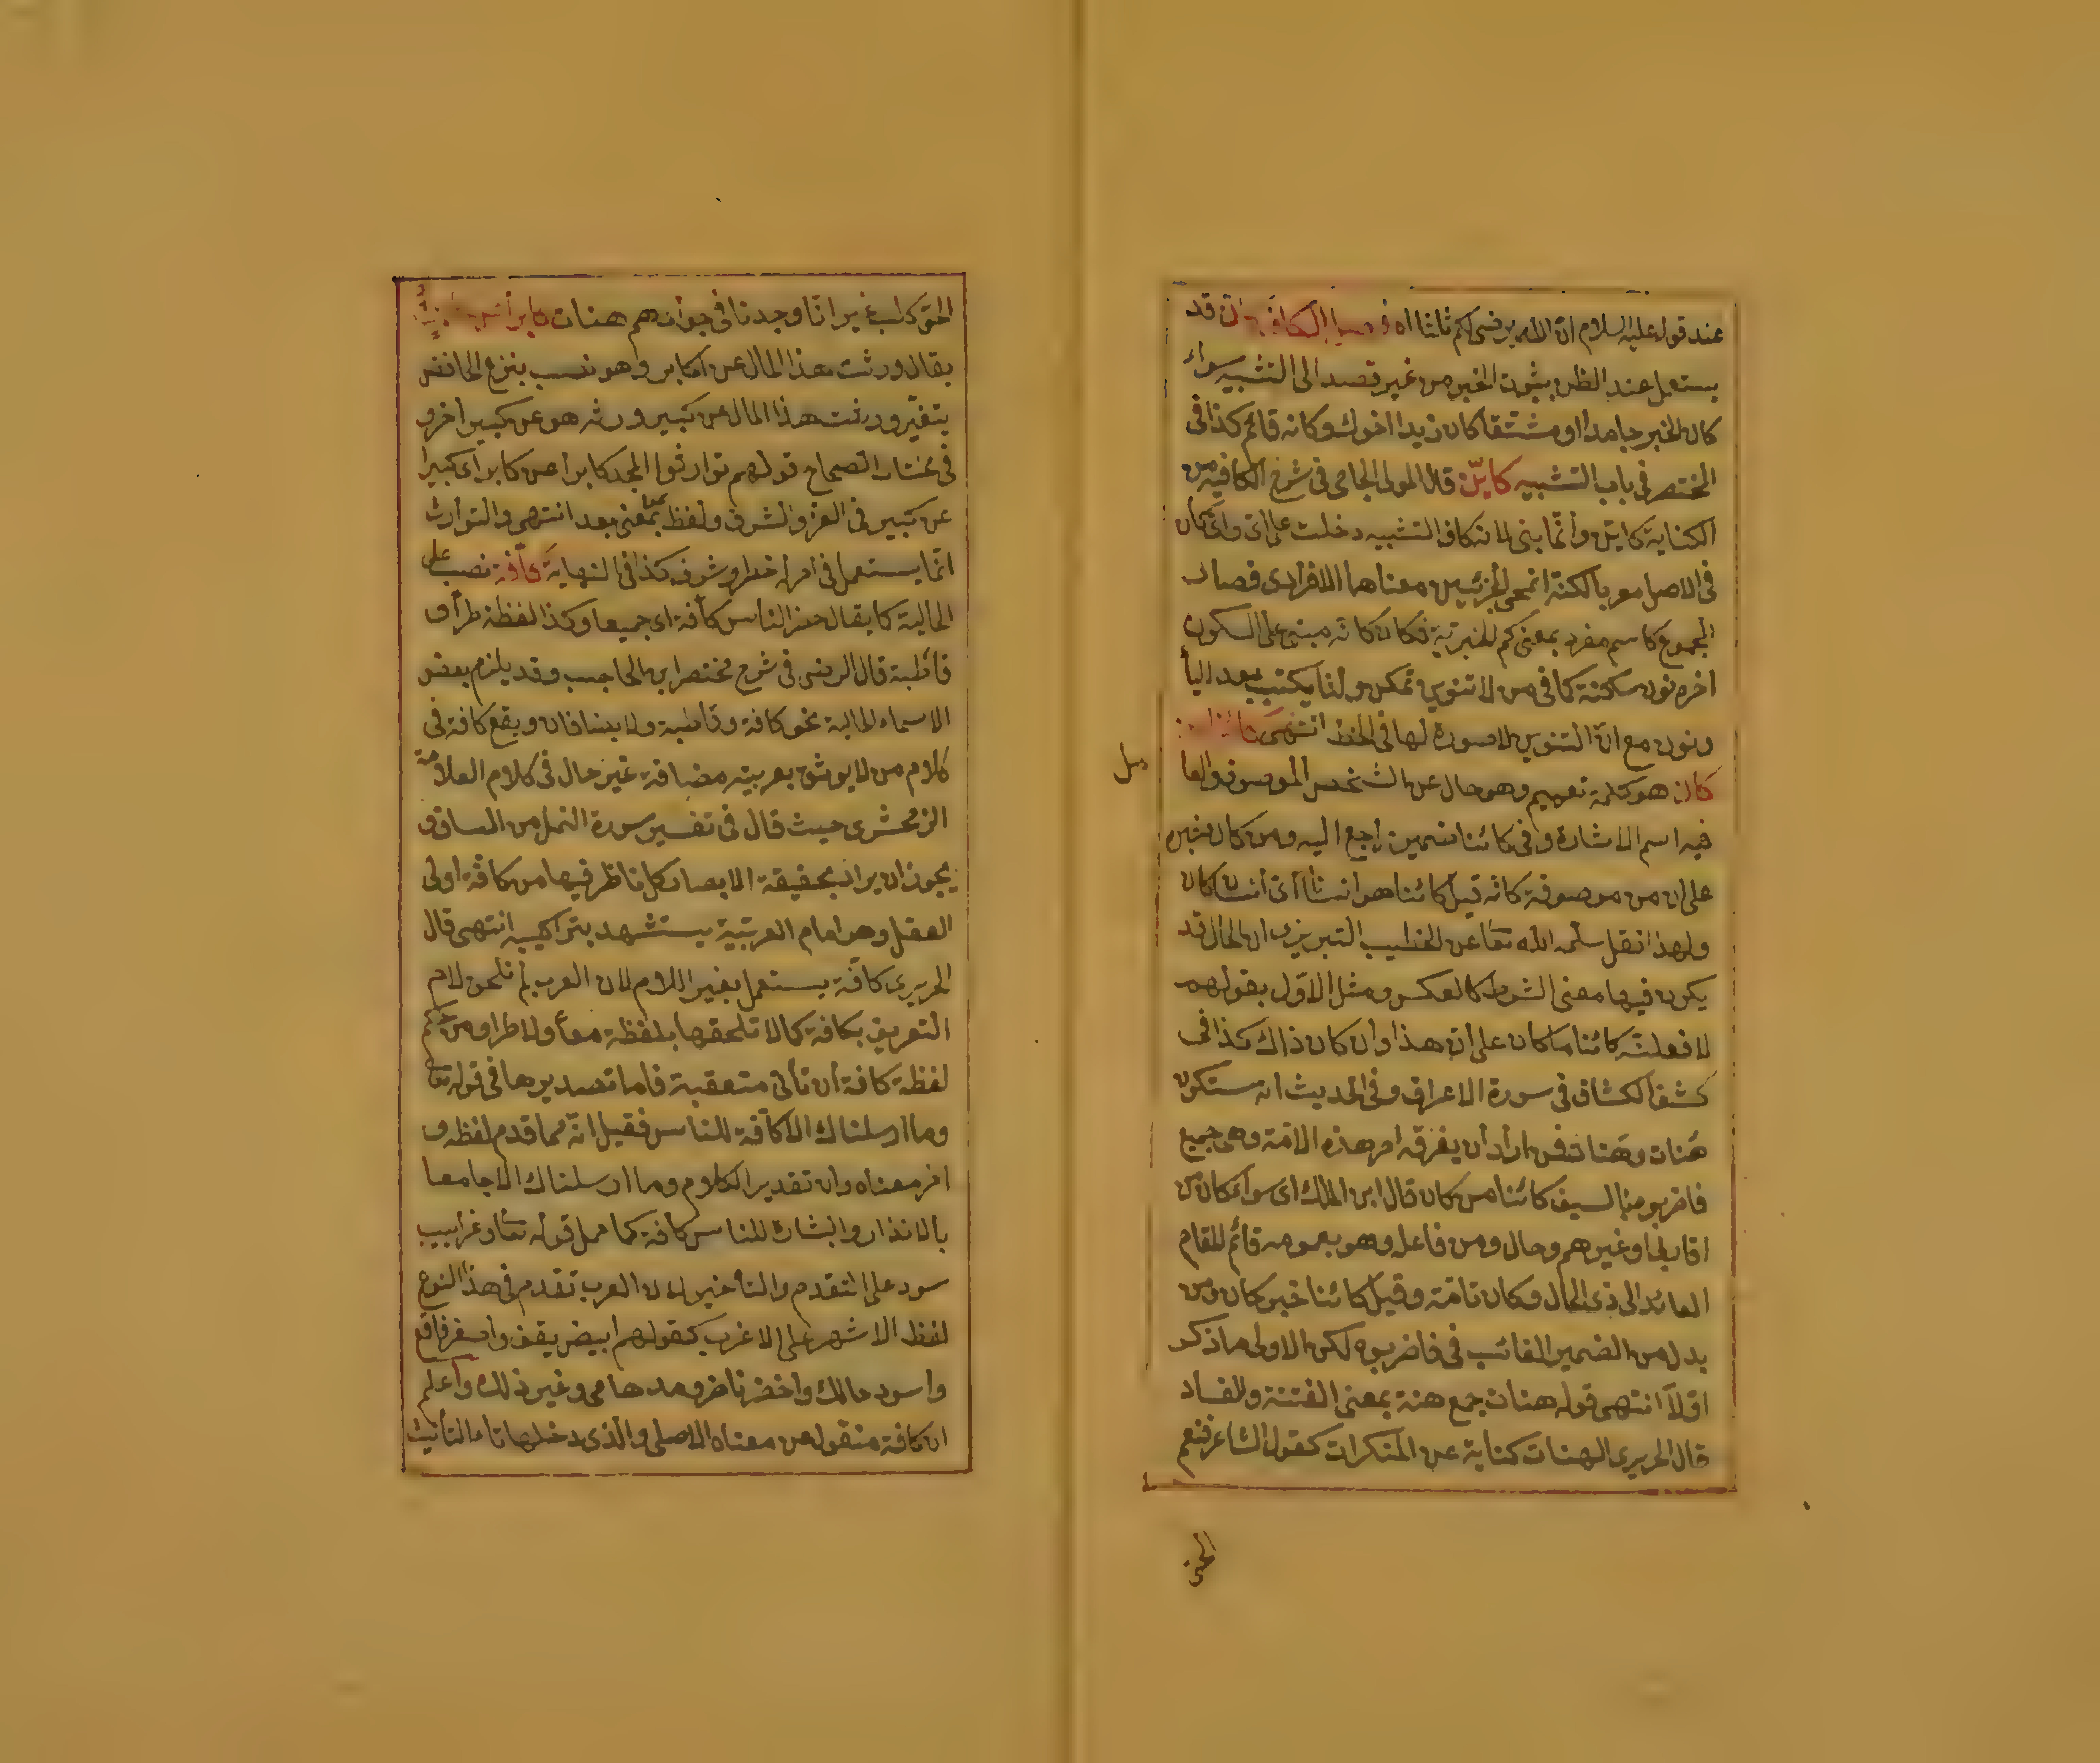 عند قوله عليه السلام ان الله يرضى لكم ثلثا اه فصل الكاف كان قد
يستعمل عند الظن بثبوت الخبر من غير قصد الى التشبيه سواء
كان الخبر جامدا او مشتقا كان زيدا اخوك وكانه قائم كذا فى
المختصر فى باب التشبيه كايّن قال المولى الجامى فى شرح الكافيه من
الكناية كايّن وانّما بنى لان كاف التشبيه دخلت على اىّ واىّ كان
فى الاصل معربا لكنه انمحى الجزئين معناهما الافرادى فصار
المجموع كاسم مفرد بمعنى كم الخبرية فكان كانه مبنى على السكون
اخره نون ساكنة كما فى من لا تنوين تمكن ولذا يكتب بعد اليأ
ونون مع انّ التنوين لا صورة لها فى الخط انتهى
كان هو كلمة تعميم وهو حال عن الشخص الموصوف والعا
مل
فيه اسم الاشارة وفى كائنا ضمير راجع اليه ومن كان خبره
على ان من موصوفة كانه قيل كائنا هو انسانا اىّ انسان كان
ولهذا نقل سلمه الله تعا عن الخطيب التبريزى ان الحال قد
يكون فيها معنى الشرط كالعكس ومثل الاوّل بقولهم
لافعلنّه كائنا ما كان على ان هذا وان كان ذاك كذا فى
كشف الكشاف فى سورة الاعراف وفى الحديث انه ستكون
هَنات وهَنات فمن اراد ان يفرق امر هذه الامّة وهى جميع
فاضربوه بالسيف كائنا من كان قال ابن الملك اى سواء كان من
اقاربى او غيرهم وحال ومن فاعله وهو بعمومه قائم المقام
العائد الى ذى الحال وكان تامّة وقيل كائنا خبر كان ومن
بدل من الضمير الغائب فى فاضربوه لكن الاولى ما ذكر
اوّلا انتهى قوله هنات جمع هنة بمعنى الفتنة والفساد
قال الحريرى الهنات كناية عن المنكرات كقول الشاعر فنعم
الحى
الحىّ كلب غير انّا وجدنا فى جوارهم هنات كابرا عن
يقال ورثت هذا المال عن اكابر وهو نصب بنزع الخافض
ورثت هذا المال عن كبير ورثه هو عن كبير اخر و
فى مختار الصحاح قولهم توارثوا المجد كابرا عن كابر اى كبيرا
عن كبير فى العز والشرف ولفظ عن بمعنى بعد انتهى والتوارث
انّما يستعمل فى امر ذا خطر وشرف كذا فى النهاية كافّة نصب على
الحالية كما يقال حضر الناس كافّة اى جميعا وكذا لفظة طرّا و
قاطبة قال الرضى فى شرح مختصر ابن الحاجب وقد يلزم بعض
الاسماء الحالية نحو كافة وقاطبة ولا يضافان ويقع كافة فى
كلام من لا يوثق بعربيته مضافة غير حال فى كلام العلامة
الزمخشرى حيث قال فى تفسير سورة النمل من الساق و
يجوز ان يراد بحقيقة الابصار كل ناظر فيها من كافّة اولى
العقل وهو امام العربيّة يستشهد بتراكيبه انتهى قال
الحريرى كافّة يستعمل بغير اللام لان العرب لم تلحق لام
التعريف بكافة كما لا تلحقها بلفظة معا ولا طرا ومن حكم
لفظة كافة ان تأتى متعقبة فاما تصديرها فى قوله تعا
وما ارسلناك الا كافّة للناس فقيل انّه مما قدم لفظه و
اخر معناه وان تقدير الكلام وما ارسلناك الا جامعا
بالانذار والبشارة للناس كافة كما حمل قوله تعا وغرابيب
سود على التقدم والتأخير لان العرب تقدم فى هذا النوع
لفظ الاشهر على الاغرب كقولهم ابيض يقق واصفر فاقع
واسود حالك واخضر ناضر ومدهامى وغير ذلك واعلم
ان كافة منقول عن معناه الاصلى والذى دخلها تاء التأنيث